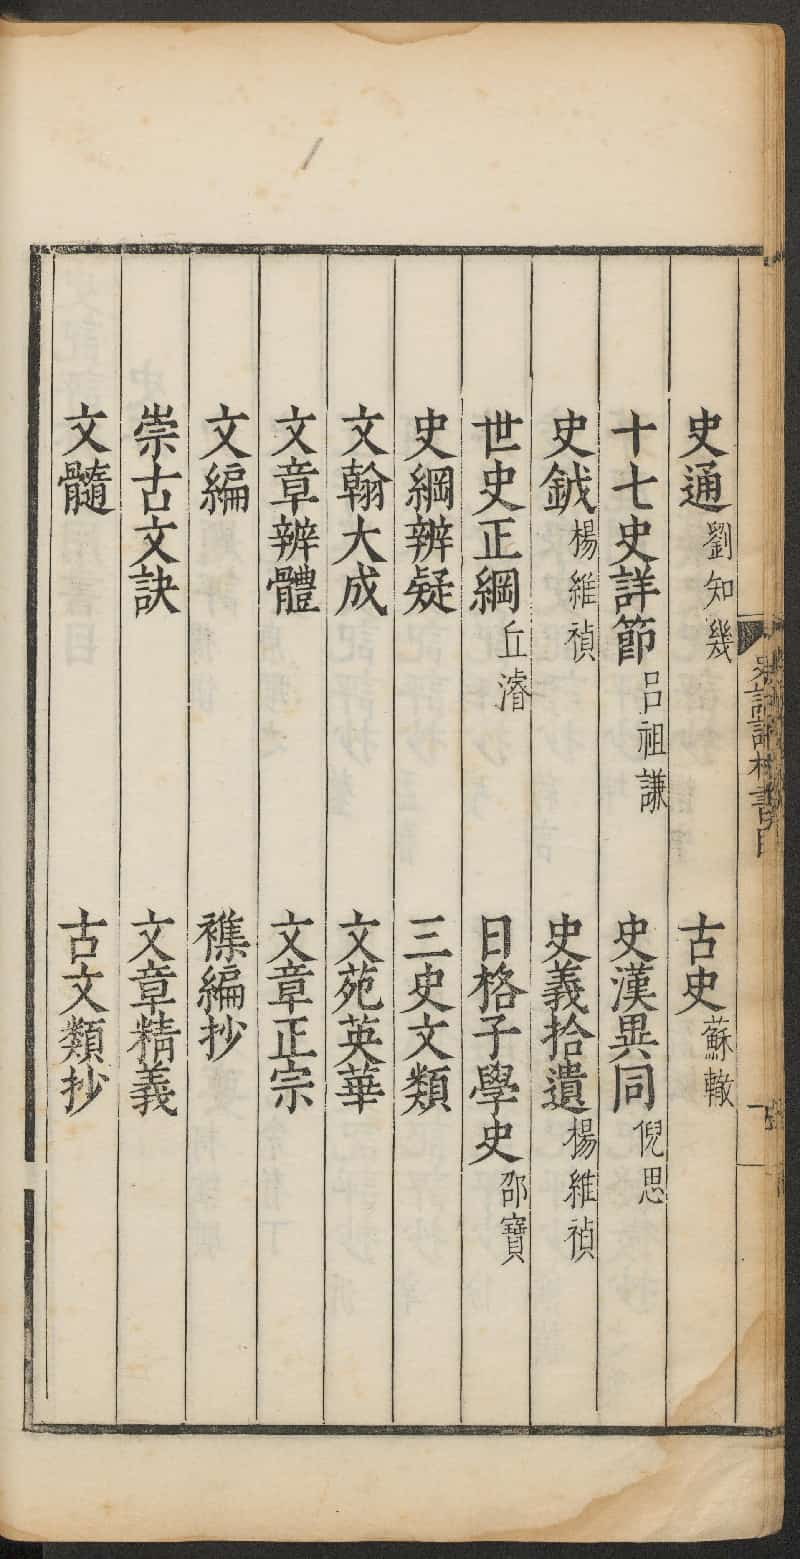 史通 劉知幾 古史 蘇轍
十七史詳節 呂祖謙 史漢異同 倪思
史鉞 楊維禎 史義拾遺 楊維禎
世史正綱 丘濬 日格子學史 邵寶
史綱辨疑 三史文類
文翰大成 文苑英華
文章辨體 文章正宗
文編 襍編抄
崇古文訣 文章精義
文髓 古文類抄